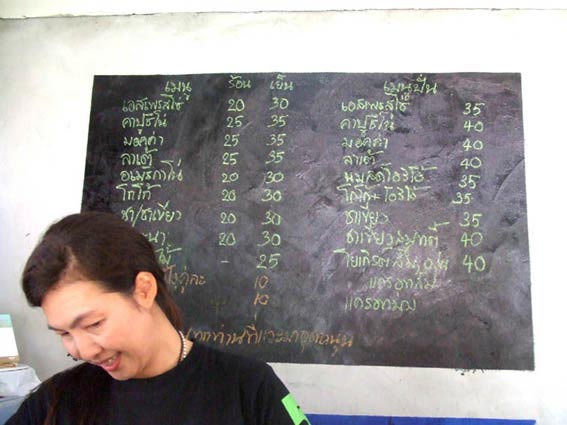 เมนู ร้อน เย็น
เอสเพรสโซ่ 20 30
คาปูชิโน่ 25 35
มอคค่า 25 35
ลาเต้ 25 35
อเมริกาโน่ 20 30
โกโก้ 20 30
ชา/ชาเขียว 20 30
20 30
- 25
10
10
เมนูปั่น
เอสเพรสโซ่ 35
คาปูชิโน่ 40
มอคค่า 40
ลาเต้ 40
นมสดโอริโอ้ 35
โอริโอ้ 35
ชาเขียว 35
ชาเขียว 40
โยเกิร์ต 40
แครอทส้ม
แครอทนม
ทุกท่านที่แวะมาอุดหนุน